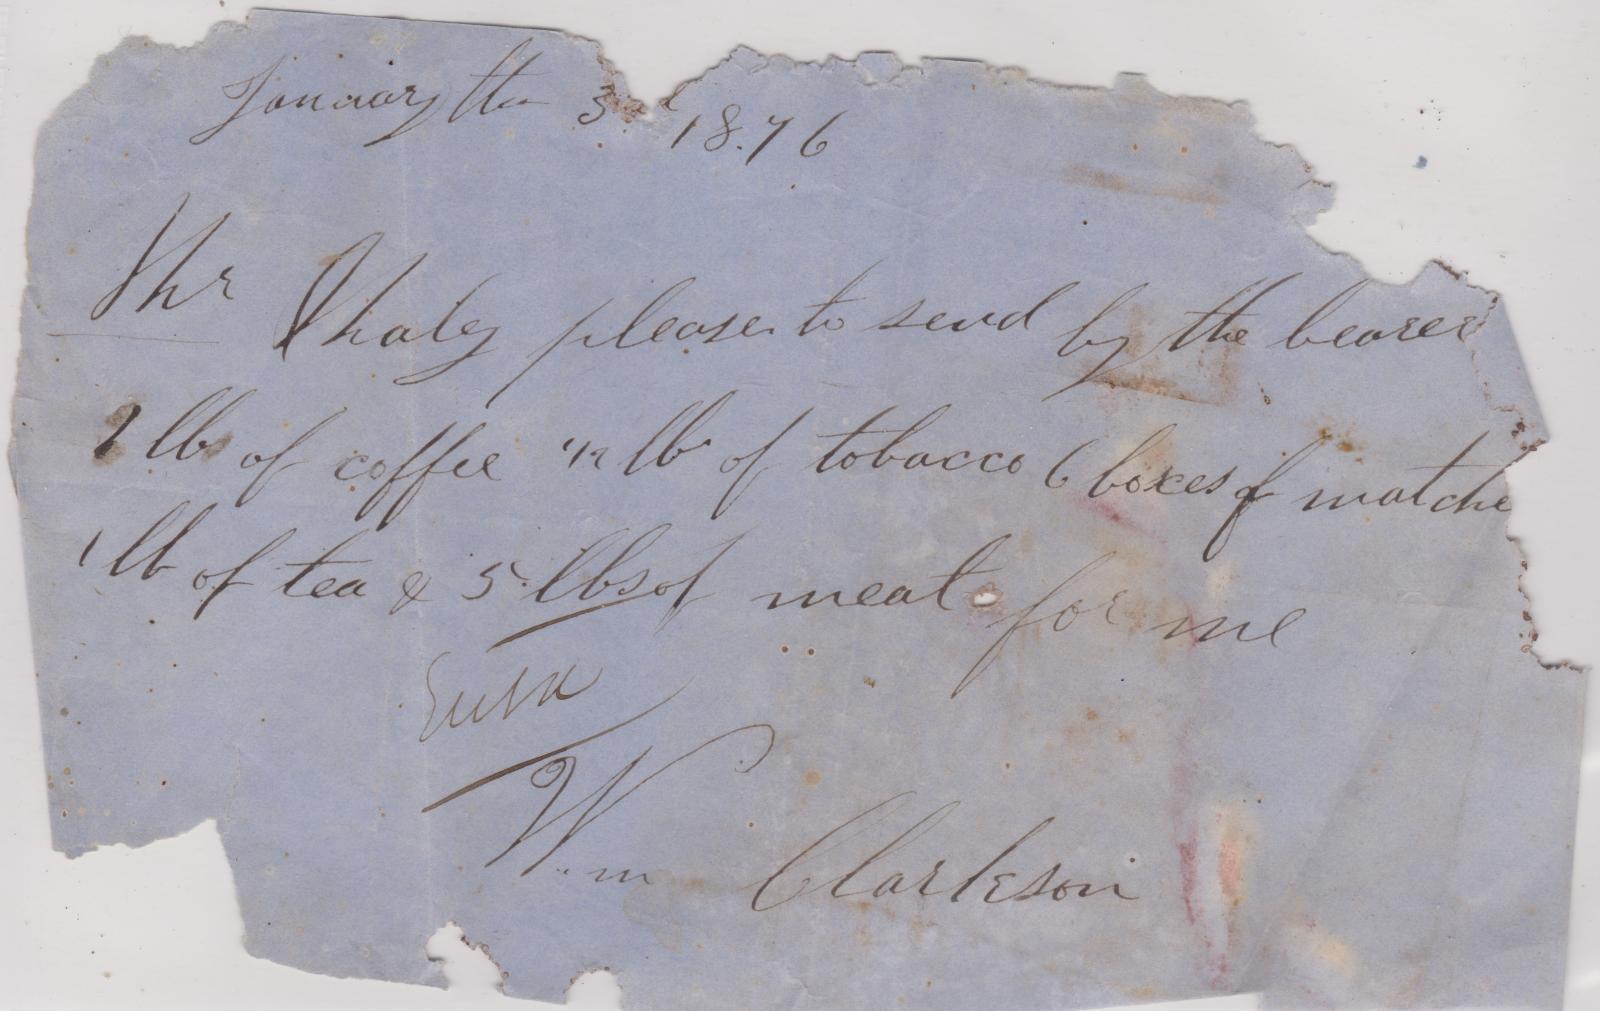 January the 3rd 1876
Mr Whaley please to send by the bearer
lbs of coffee 1/2 lb of tobacco 6 boxes of matche
1 lb of tea & 5 lbs of meat for me
Wm Clarkson